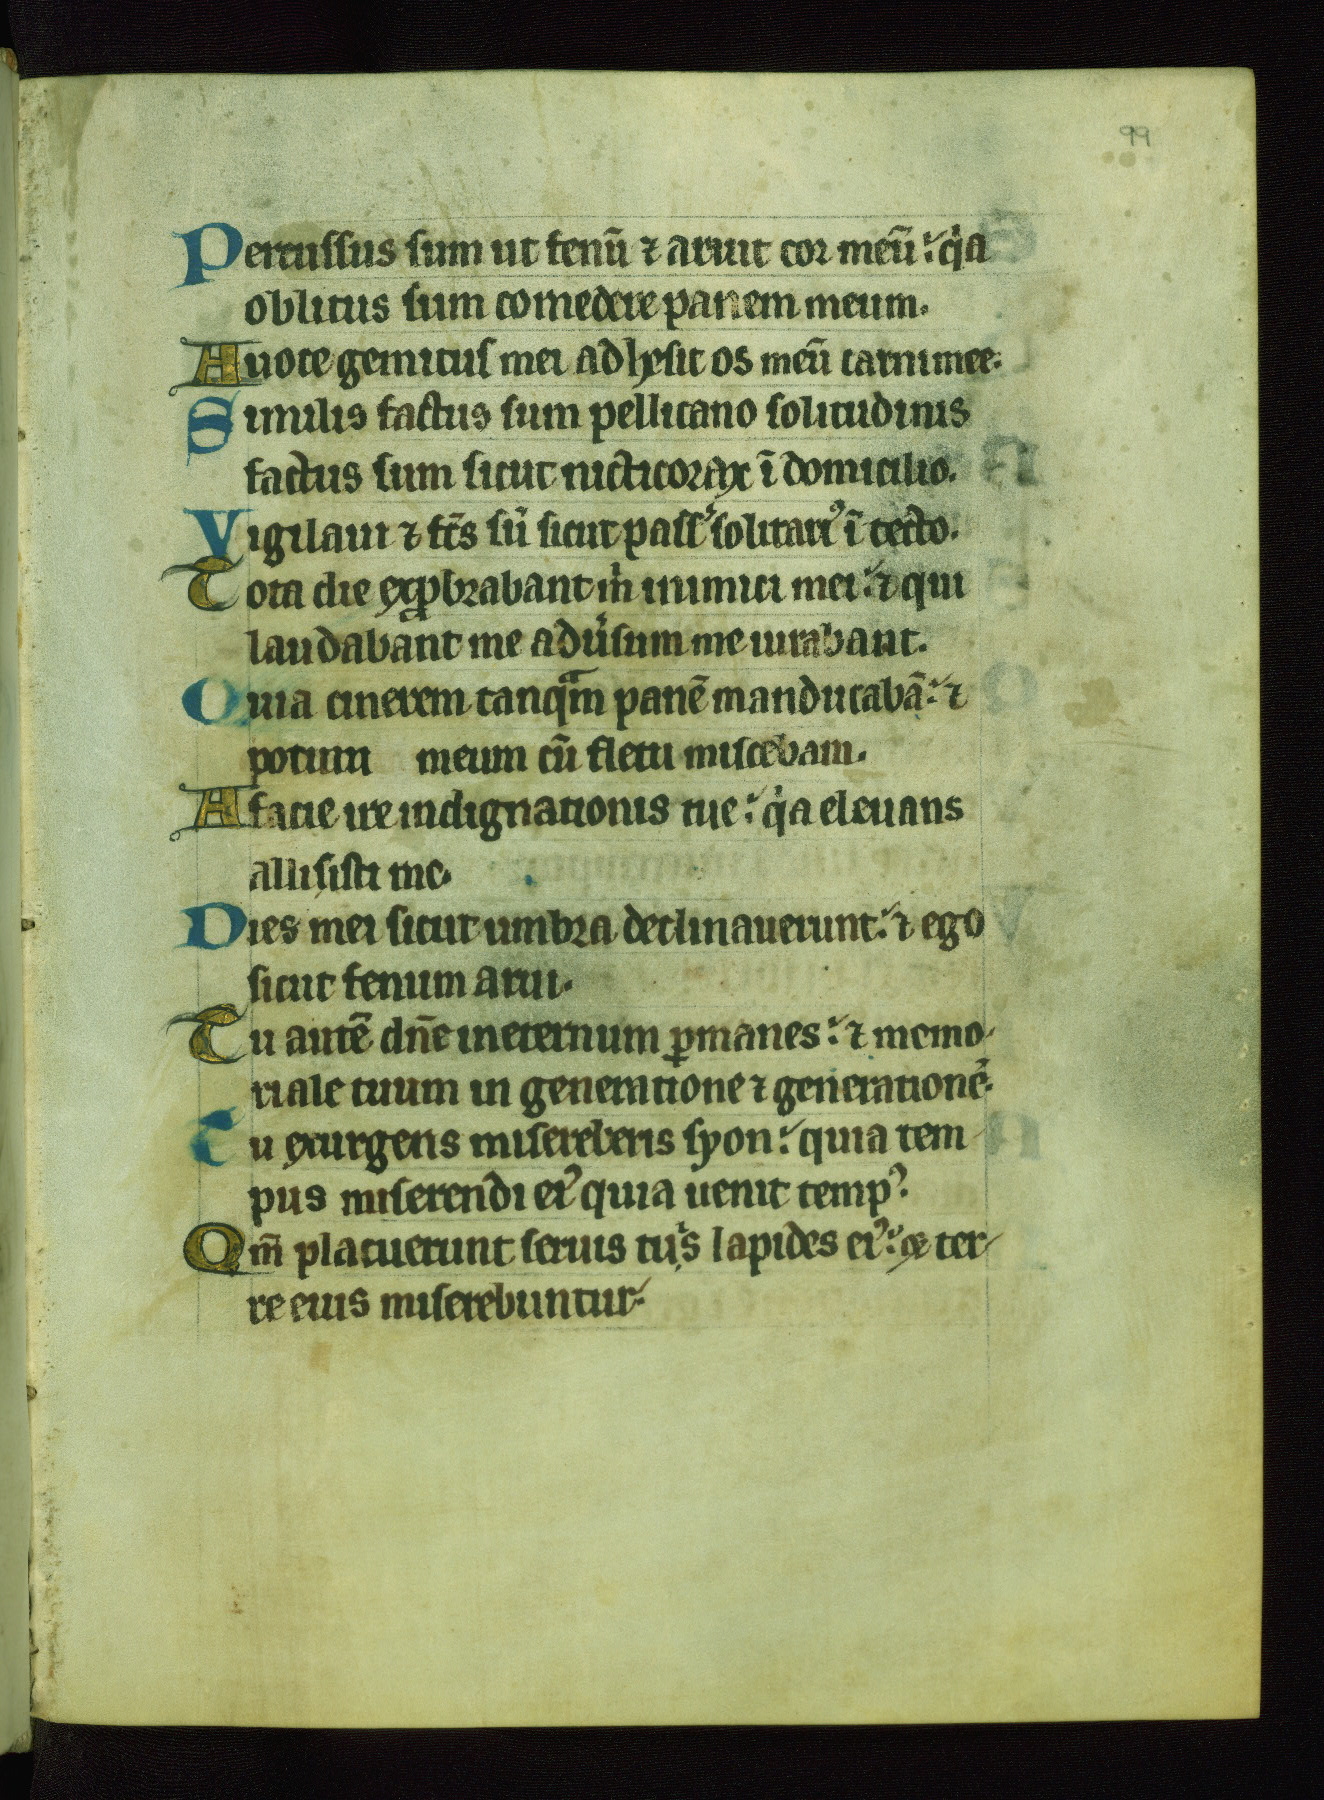 99
Percussus sum ut fenū ⁊ aruit cor meū: qͥa
oblitus sum comedere panem meum.
A uoce gemitus mei adhesit os meū carni mee.
Similis factus sum pellicano solitudinis
factus sum sicut nicticorax ī domicilio.
Vigilaui ⁊ fc̄s sū sicut pass͛ solitariꝰ ī tecto.
Tota die exꝓbrabant m̍ inimici mei: ⁊ qui
laudabant me adu͛sum me iurabant.
Quia cinerem tanqᷓm panē manducabā: ⁊
potum meum cū fletu miscebam.
A facie ire indignationis tue: qͥa eleuans
allisisti me.
Dies mei sicut umbra declinauerunt: ⁊ ego
sicut fenum arui.
Tu autē dn̄e in eternum ꝑmanes: ⁊ memo
riale tuum in generatione ⁊ generationē.
Tu exurgens misereberis syon: quia tem
pus miserendi eiꝰ quia uenit tempꝰ.
Qm̄ placuerunt seruis tuͥs lapides eiꝰ: ⁊ ter
re eius miserebuntur.